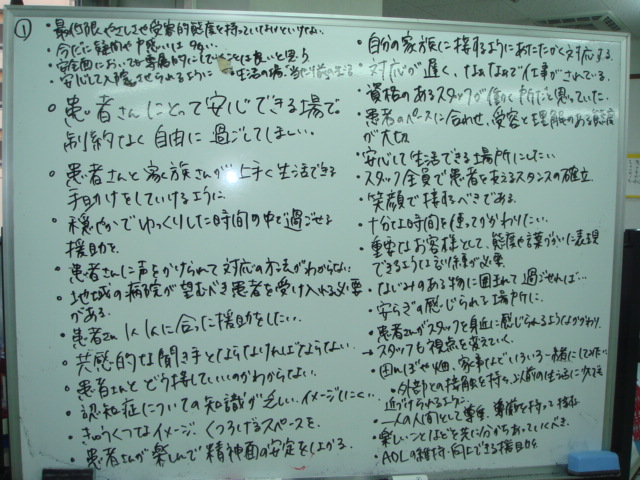 ①
・最低限やさしさや受容的態度を持っていなければいけない。
・今だに疑問や戸惑いは多い。
・安全面においても専属的にしていくことは良いと思う
・安心して入院させられるように
・生活の場
・患者さんにとって安心できる場で
制約なく自由に過ごしてほしい。
・患者さんと家族さんが上手く生活できる
手助けをしていけるように。
・穏やかでゆっくりした時間の中で過ごせる
援助を。
・患者さんに声をかけられて対応の方法がわからない。
・地域の病院が望むべき患者を受け入れる必要
がある。
・患者さん1人1人に合った援助をしたい。
・共感的な聞き手とならなければならない。
・患者さんとどう接していいのかわからない。
・認知症についての知識が乏しい。イメージしにくい。
・きゅうくつなイメージ、くつろげるスペースを。
・患者さんが楽しんで精神面の安定をはかる。
・自分の家族に接するようにあたたかく対応する。
・対応が遅く、なぁなぁで仕事がされている。
・資格のあるスタッフが働く所だと思っていた。
・患者のペースに合わせ、受容と理解のある態度
が大切
・安心して生活できる場所にしたい。
・スタッフ全員で患者を支えるスタンスの確立。
・笑顔で接するべきである。
・十分な時間を使ってかかわりたい。
・重要なお客様として、態度や言葉づかいに表現
できるような関係が必要。
・なじみのある物に囲まれて過ごせれば…
・安らぎの感じられる場所に。
・患者さんがスタッフを身近に感じられるようなかかわり。
→スタッフも視点を変えていく。
・田んぼや畑、家事などいろいろ一緒にしてみたい。
・外部との接触を持ち、以前の生活に少しでも
近づけられるように。
・一人の人間として尊重、尊厳を持って接する
・楽しいことはどを共に分かちあっていくべき。
・ADLの維持・向上できる援助を